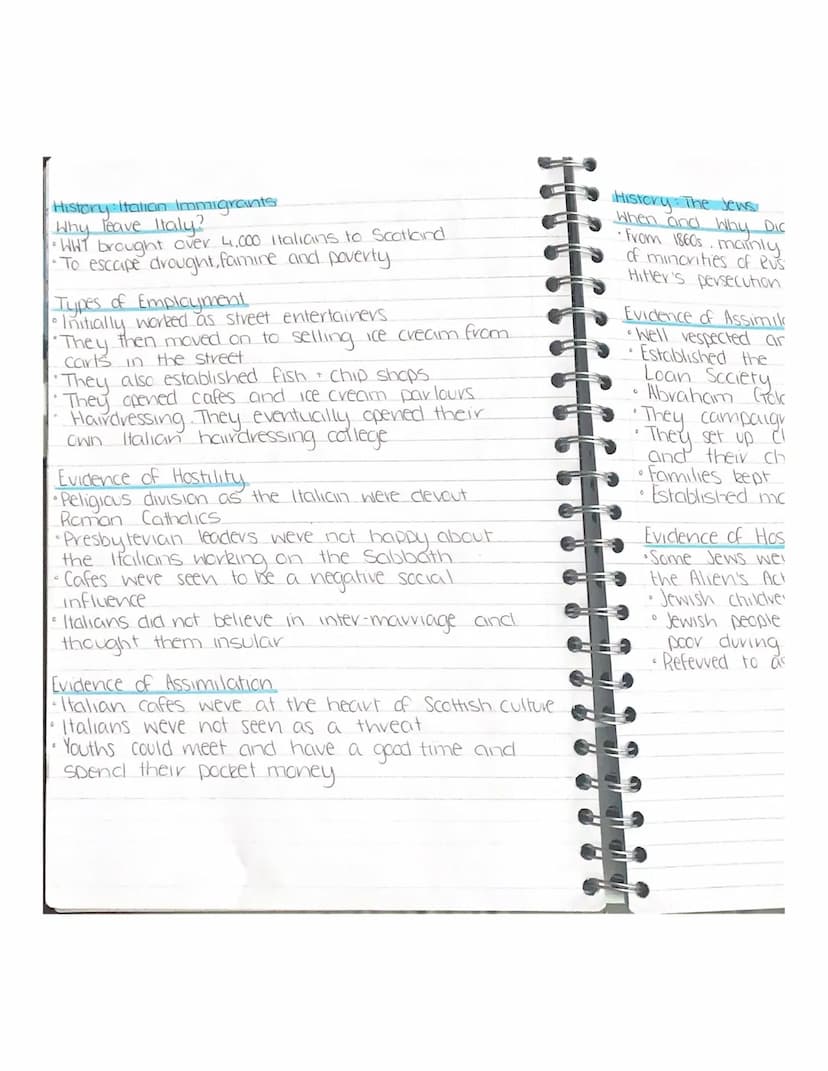 History: Italian Immigrants
Why leave Italy?
• WW1 brought over 4,000 Italians to Scotland
• To escape drought, famine and poverty
Types of Employment
• Initially worked as street entertainers
• They then moved on to selling ice cream from
carts in the street
• They also established fish + chip shops
• They opened cafes and ice cream parlours
• Hairdressing. They eventually opened their
own Italian hairdressing college
Evidence of Hostility
• Religious division as the Italian were devout
Roman Catholics
• Presbyterian leaders were not happy about
the Italians working on the Sabbath
• Cafes were seen to be a negative social
influence
• Italians did not believe in inter-marriage and
thought them insular
Evidence of Assimilation
• Italian cafes were at the heart of Scottish culture
• Italians were not seen as a threat
• Youths could meet and have a good time and
spend their pocket money
History: The Jews
When and Why Did
• From 1860s, mainly
of minorities of Rus
Hitler's persecution
Evidence of Assimil
• Well respected an
• Established the
Loan Society
• Abraham Gold
• They campaig
• They set up cl
and their ch
• Families kept
• Established mo
Evidence of Hos
• Some Jews wer
the Alien's Act
• Jewish childre
• Jewish people
poor during
• Referred to as